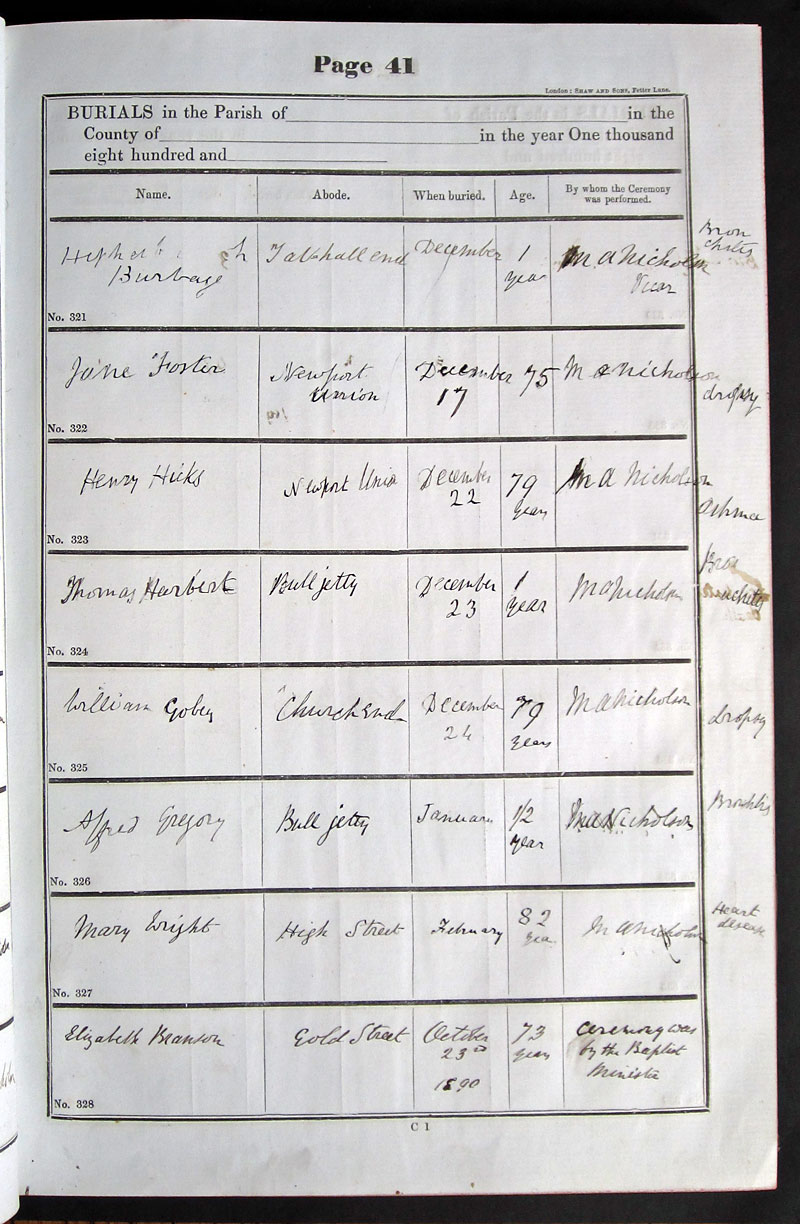 Page 41
London: SHAW AND SONS, Fetter Lane.
BURIALS in the Parish of in the
County of in the year One thousand
eight hundred and
Name. Abode. When buried. Age. By whom the Ceremony was performed.
Burbage Tathall end December 1 year M A Nicholson Vicar Bronchitis
No. 321
Jane Foster Newport Union December 17 75 M A Nicholson dropsy
No. 322
Henry Hicks Newport Union December 22 79 years M A Nicholson Asthma
No. 323
Thomas Harbert Bull jetty December 23 1 year M A Nicholson Bronchitis
No. 324
William Gobey Church End December 24 79 years M A Nicholson dropsy
No. 325
Alfred Gregory Bull jetty January 1/2 year M A Nicholson Bronchitis
No. 326
Mary Wright High Street February 82 M A Nicholson Heart disease
No. 327
Elizabeth Branson Gold Street October 23rd 1890 73 years Ceremony was by the Baptist Minister
No. 328
C 1